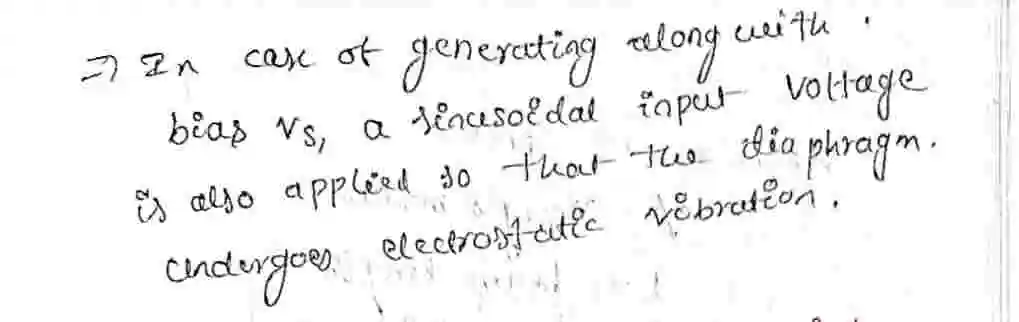 ⇒ In case of generating along with
bias Vs, a sinusoidal input voltage
is also applied so that the diaphragm.
undergoes electrostatic vibration.